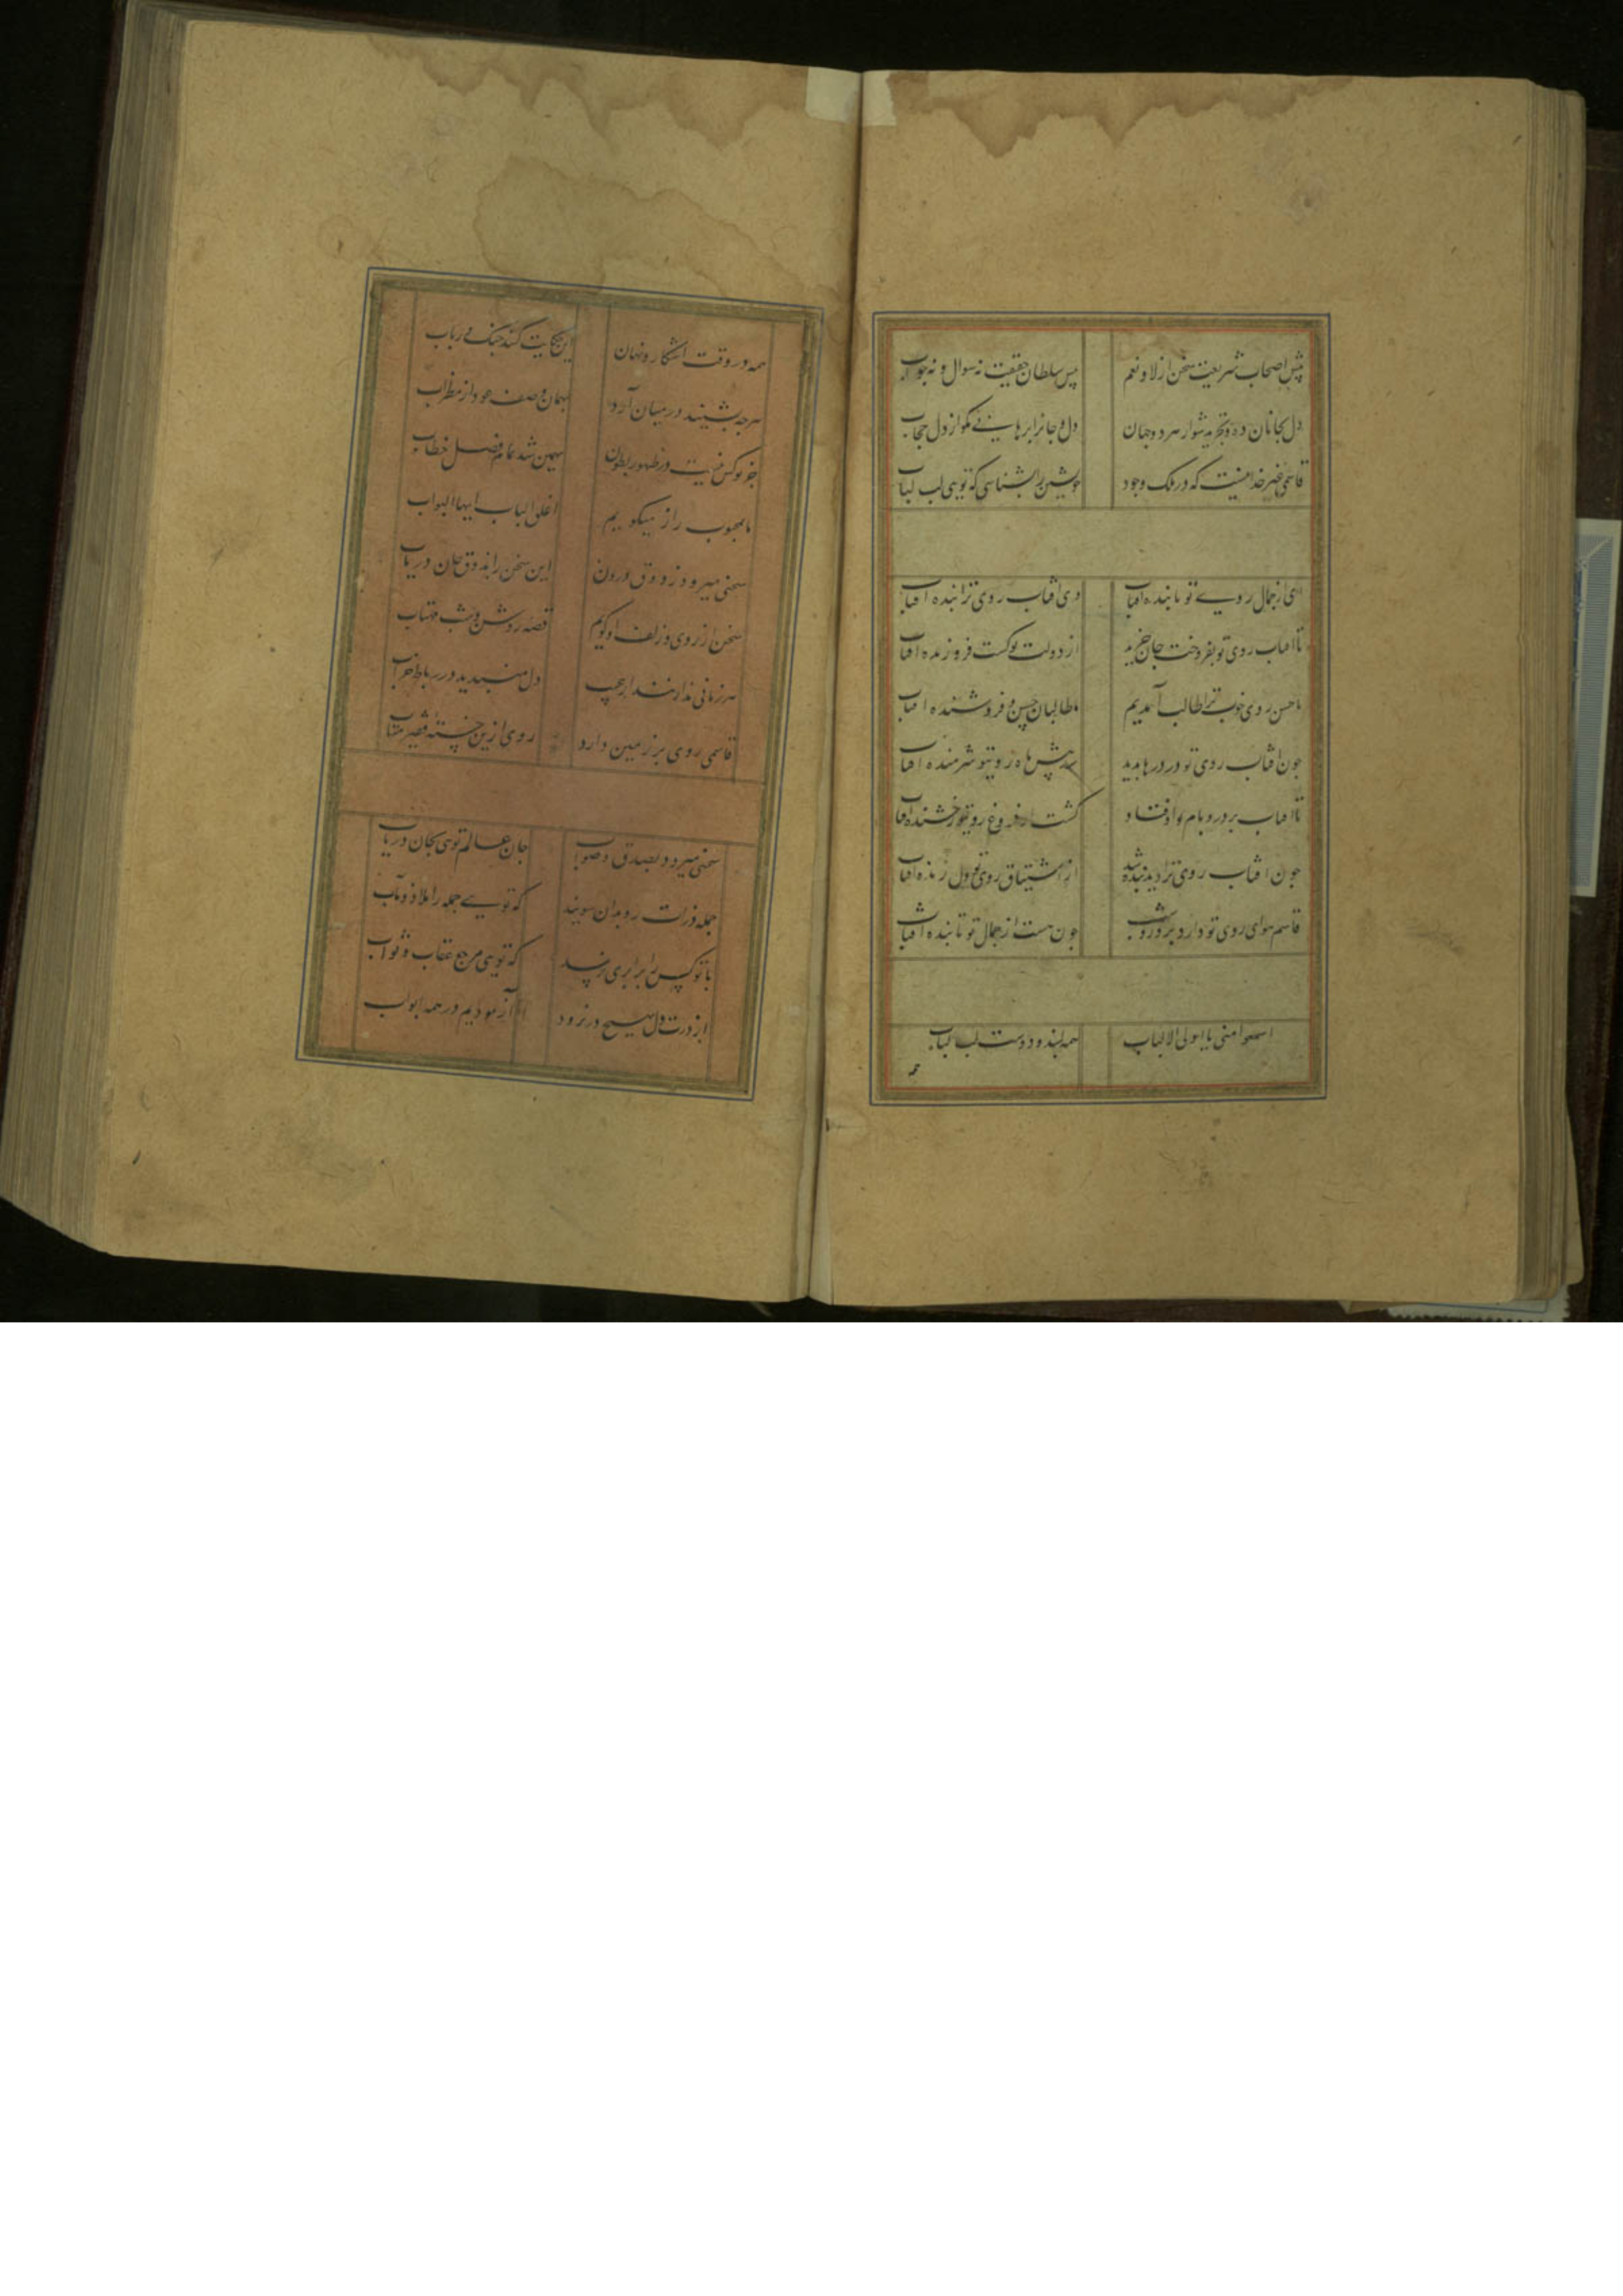 پیش اصحاب شریعت سخن از لا و نعم پیش سلطان حقیقت نه سوال و نه جواب
دل بجانان ده و تجرید شو از هر دو جهان دل و جانرا برهانی مکو از دل حجاب
قاسمی غیر خدا نیست که در ملک وجود خویشتن را بشناسی که تویی لب لباب
ای از جمال روی تو تابنده آفتاب وی آفتاب روی ترا بنده آفتاب
تا آفتاب روی تو بفروخت جان خرید از دولت تو کشت فروزنده آفتاب
ما حسن روی خوب ترا طالب آمدیم ما طالبان حسن و فروشنده آفتاب
جون آفتاب روی تو در درها بدید شد پیش ماه رویتو شرمنده آفتاب
تا آفتاب بر در و بام تو اوفتاد کشت از فروغ رویتو رخشنده آفتاب
جون آفتاب روی ترا دید بنده شد از اشتیاق روی تو دل زنده آفتاب
قاسم هوای روی تو دارد بروز و شب جون هست از جمال تو تابنده آفتاب
اسمعوا منی یا اولی الالباب همه لبند و دوست لب لباب
همه
همه در وقت اشکار و نهان این حکایت کنند جنک و رباب
هرجه بشنید در میان آرد
جز تو کس نیست در ظهور و بطون سهمن شد تمام فصل خطاب
با محبوب راز میکوییم اغلق الباب ایها البواب
سخنی میرود ز ذوق درون این سخن را بذوق جان دریاب
سخن از روی و زلف او کویم قصه روشن و شب مهتاب
دل مبندید در رباط خراب
قاسمی روی بر زمین دارد روی ازین خسته فقیر متاب
سخنی میرود بصدق و صواب جان عالم تویی بجان دریاب
جمله ذرات رو بدان سویند که تویی جمله را ملاذ و مآب
با تو کس را برابری نرسد که تویی مرجع عقاب و ثواب
از درت دل بهیچ در نرود آزمودیم در همه ابواب